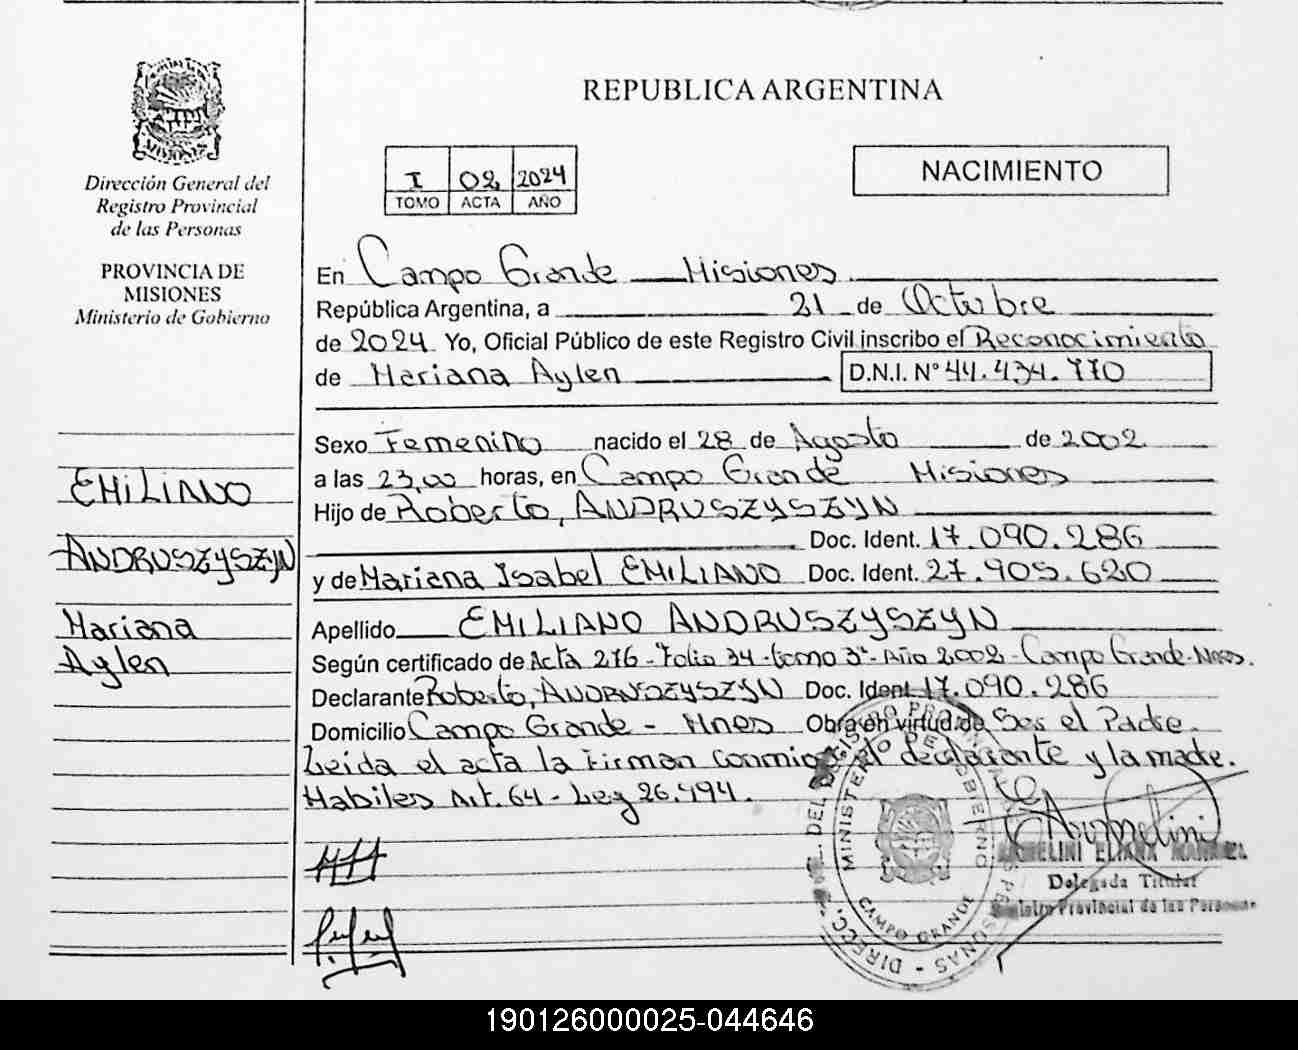 Dirección General del
Registro Provincial
de las Personas
PROVINCIA DE
MISIONES
Ministerio de Gobierno
EMILIANO
ANDRUSZYSZYN
Mariana
Aylen
REPUBLICA ARGENTINA
I 02 2024
TOMO ACTA AÑO
NACIMIENTO
En Campo Grande Misiones
República Argentina, a 21 de Octubre
de 2024 Yo, Oficial Público de este Registro Civil inscribo el Reconocimiento
de Mariana Aylen D.N.I. Nº 44.434.770
Sexo Femenino nacido el 28 de Agosto de 2002
a las 23,00 horas, en Campo Grande Misiones
Hijo de Roberto, ANDRUSZYSZYN
Doc. Ident. 17.090.286
y de Mariana Isabel EMILIANO Doc. Ident. 27.905.620
Apellido EMILIANO ANDRUSZYSZYN
Según certificado de Acta 276 - Folio 34 - tomo 3º - Año 2002 - Campo Grande - Mnes.
Declarante Roberto, ANDRUSZYSZYN Doc. Ident. 17.090.286
Domicilio Campo Grande - Mnes Obra en virtud de Ser el Padre.
Leida el acta la Firman conmigo el declarante y la madre.
Habiles Art. 64 - Ley 26.994.
DIRECC. DEL REGISTRO PROV. PERSONAS
MINISTERIO DE GOBIERNO
CAMPO GRANDE
ELIANA
Delegada Titular
Registro Provincial de las Personas
190126000025-044646